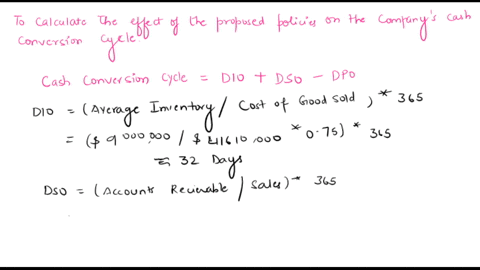 To Calculate The effect of the proposed policies on the Company's cash
conversion cycle
Cash Conversion Cycle = DIO + DSO - DPO
DIO = (Average Inventory / Cost of Good Sold) * 365
= ($9000,000 / $41610,000 * 0.75) * 365
= 32 Days
DSO = (Accounts Recievable / Sales) * 365